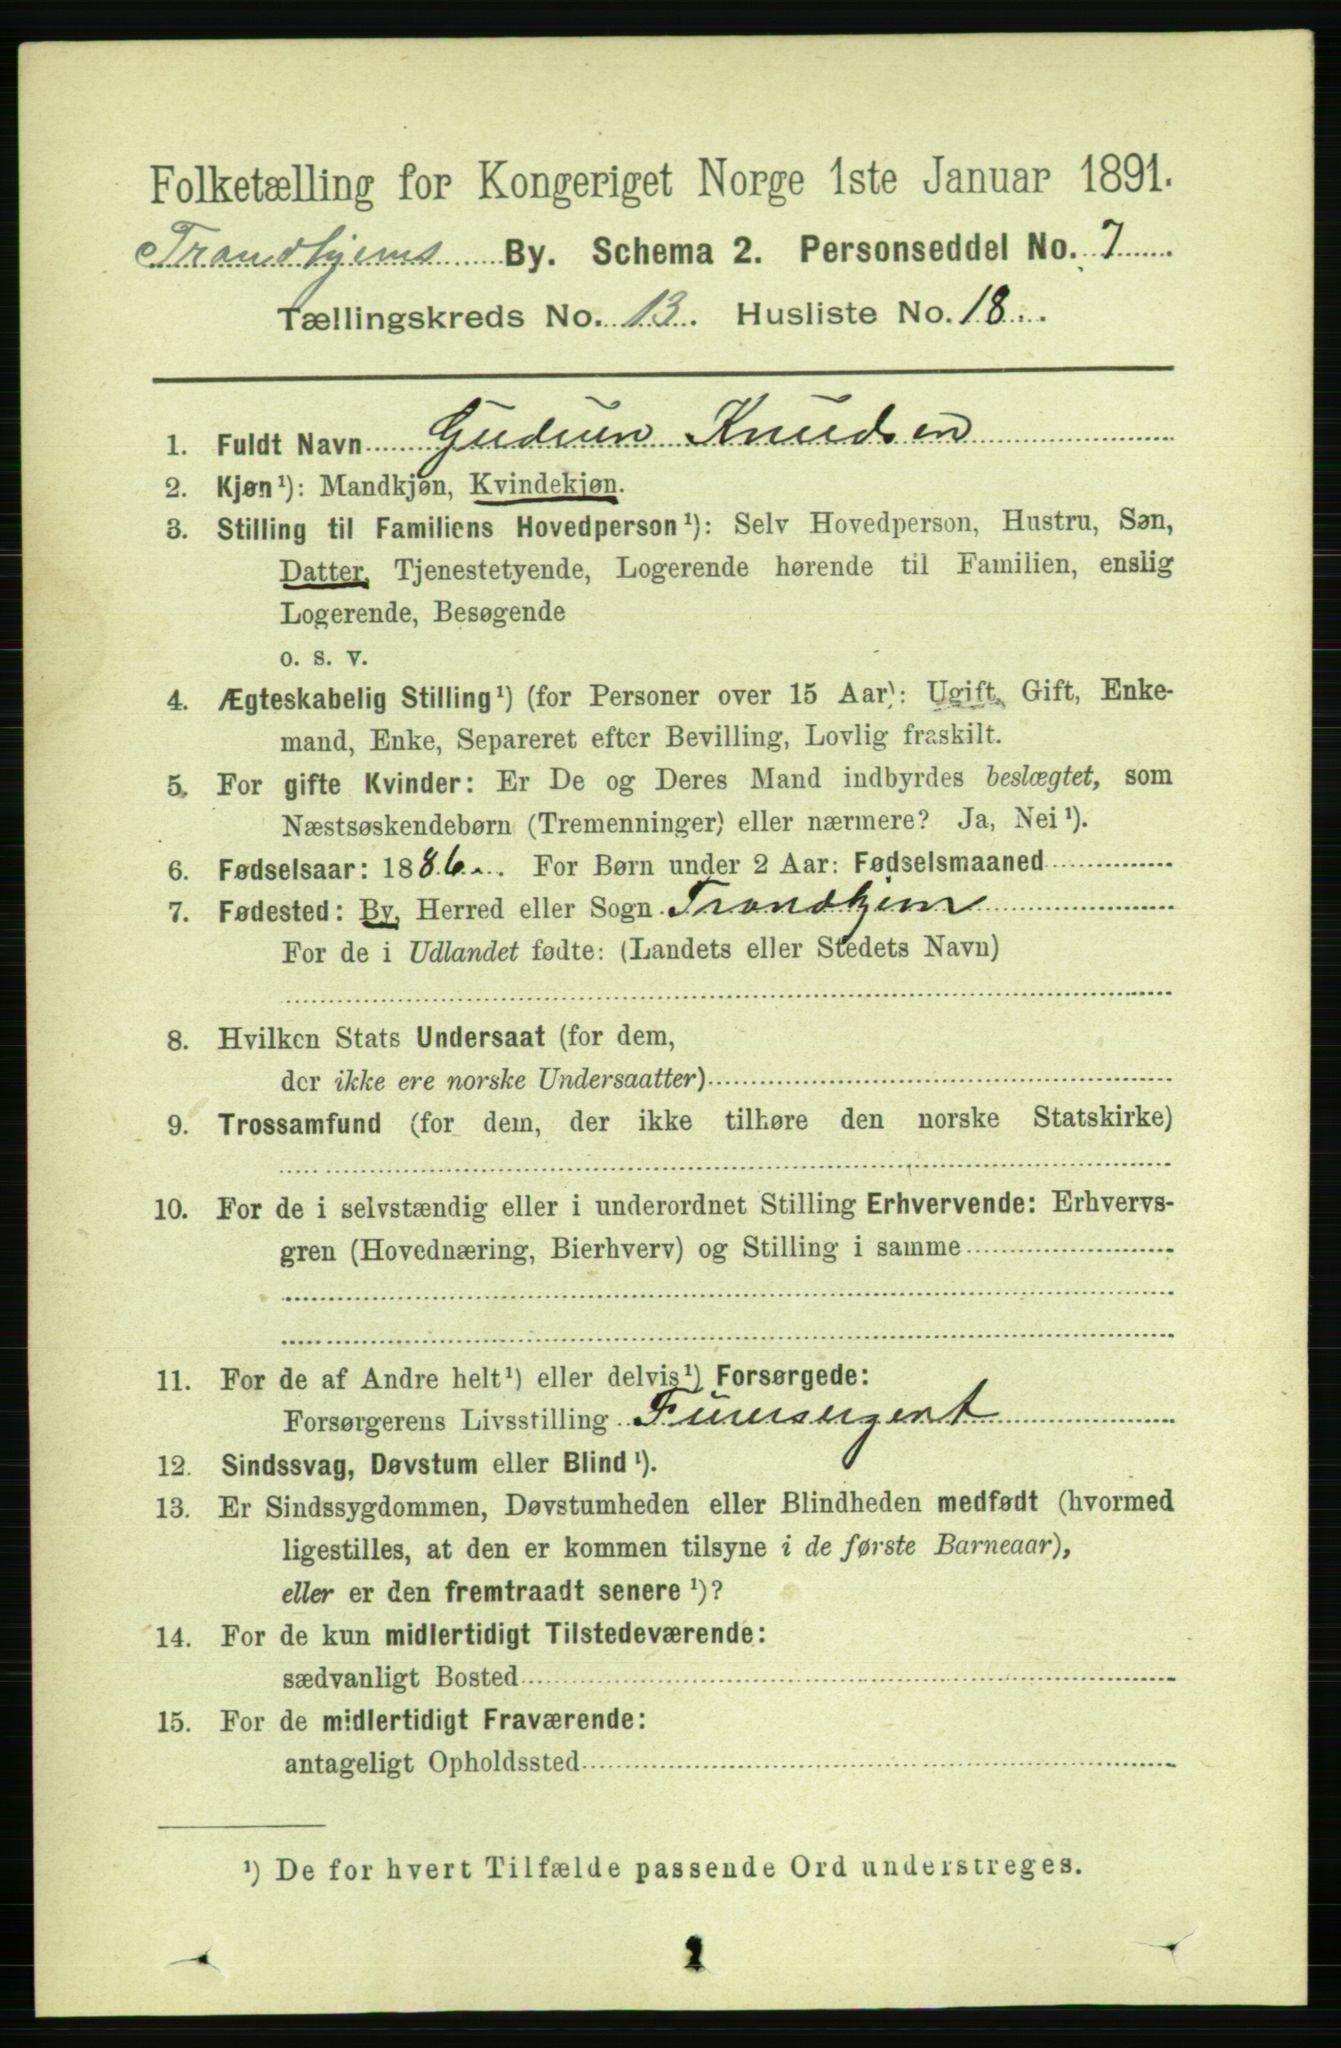 Folketælling for Kongeriget Norge 1ste Januar 1891.
Trondhjems By. Schema 2. Personseddel No. 7
Tællingskreds No. 13. Husliste No. 18
1. Fuldt Navn Gudrun Knudsen
2. Kjøn¹): Mandkjøn, Kvindekjøn.
3. Stilling til Familiens Hovedperson¹): Selv Hovedperson, Hustru, Søn,
Datter, Tjenestetyende, Logerende hørende til Familien, enslig
Logerende, Besøgende
o. s. v.
4. Ægteskabelig Stilling¹) (for Personer over 15 Aar): Ugift, Gift, Enke-
mand, Enke, Separeret efter Bevilling, Lovlig fraskilt.
5. For gifte Kvinder: Er De og Deres Mand indbyrdes beslægtet, som
Næstsøskendebørn (Tremenninger) eller nærmere? Ja, Nei¹).
6. Fødselsaar: 1886. For Børn under 2 Aar: Fødselsmaaned
7. Fødested: By, Herred eller Sogn Trondhjem
For de i Udlandet fødte: (Landets eller Stedets Navn)
8. Hvilken Stats Undersaat (for dem,
der ikke ere norske Undersaatter)
9. Trossamfund (for dem, der ikke tilhøre den norske Statskirke)
10. For de i selvstændig eller i underordnet Stilling Erhvervende: Erhvervs-
gren (Hovednæring, Bierhverv) og Stilling i samme
11. For de af Andre helt¹) eller delvis¹) Forsørgede:
Forsørgerens Livsstilling
12. Sindssvag, Døvstum eller Blind¹).
13. Er Sindssygdommen, Døvstumheden eller Blindheden medfødt (hvormed
ligestilles, at den er kommen tilsyne i de første Barneaar),
eller er den fremtraadt senere¹)?
14. For de kun midlertidigt Tilstedeværende:
sædvanligt Bosted
15. For de midlertidigt Fraværende:
antageligt Opholdssted
¹) De for hvert Tilfælde passende Ord understreges.